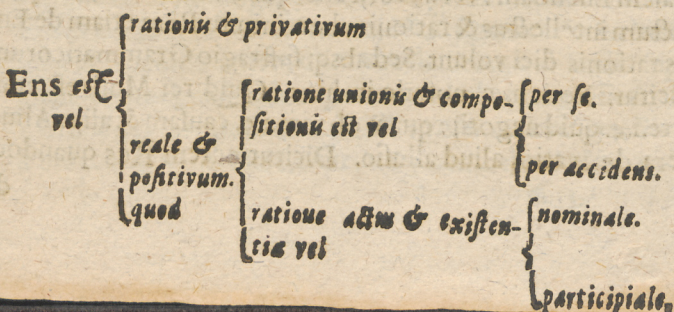 Ens est
vel
rationis & privativum
reale &
positivum.
quod
ratione unionis & compo-
sitionis est vel
per se.
per accidens.
ratioue actus & existen-
tiæ vel
nominale.
participiale,